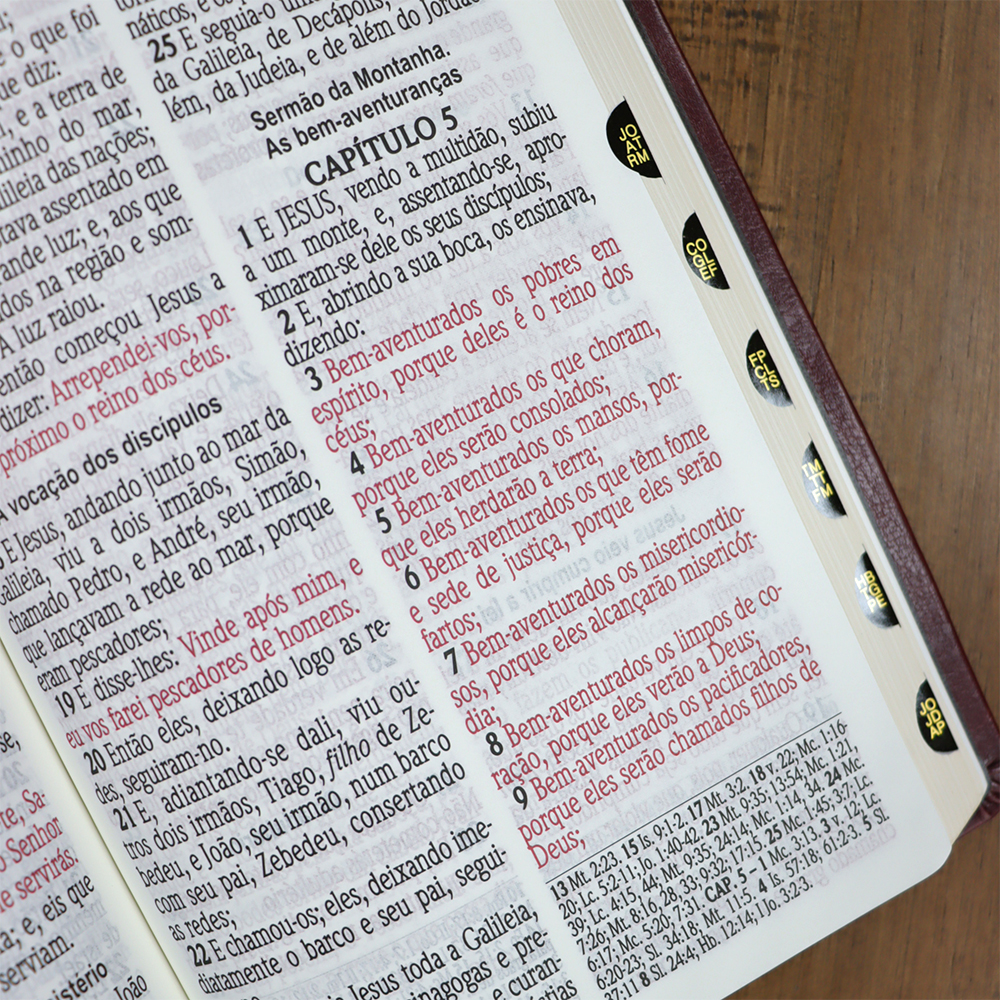 o que foi
que diz:
e a terra de
minho do mar,
lileia das nações;
tava assentado em
ande luz; e, aos que
dos na região e som-
A luz raiou.
então começou Jesus a
dizer: Arrependei-vos, por-
próximo o reino dos céus.
A vocação dos discípulos
E Jesus, andando junto ao mar da
Galileia, viu a dois irmãos, Simão,
chamado Pedro, e André, seu irmão,
que lançavam a rede ao mar, porque
eram pescadores;
19 E disse-lhes: Vinde após mim, e
eu vos farei pescadores de homens.
20 Então eles, deixando logo as re-
des, seguiram-no.
21 E, adiantando-se dali, viu ou-
tros dois irmãos, Tiago, filho de Ze-
bedeu, e João, seu irmão, num barco
com seu pai, Zebedeu, consertando
as redes;
22 E chamou-os; eles, deixando ime-
diatamente o barco e seu pai, segui-
Jesus toda a Galileia,
sinagogas e pre-
e curan-
25 E seguia-o
da Galileia, de Decápolis,
lém, da Judeia, e de além do Jordão
Sermão da Montanha.
As bem-aventuranças
CAPÍTULO 5
1 E JESUS, vendo a multidão, subiu
a um monte, e, assentando-se, apro-
ximaram-se dele os seus discípulos;
2 E, abrindo a sua boca, os ensinava,
dizendo:
3 Bem-aventurados os pobres em
espírito, porque deles é o reino dos
céus;
4 Bem-aventurados os que choram,
porque eles serão consolados;
5 Bem-aventurados os mansos, por-
que eles herdarão a terra;
6 Bem-aventurados os que têm fome
e sede de justiça, porque eles serão
fartos;
7 Bem-aventurados os misericordio-
sos, porque eles alcançarão misericór-
dia;
8 Bem-aventurados os limpos de co-
ração, porque eles verão a Deus;
9 Bem-aventurados os pacificadores,
porque eles serão chamados filhos de
Deus;
13 Mt. 2:23. 15 Is. 9:1-2. 17 Mt. 3:2. 18 v. 22; Mc. 1:16-
20; Lc. 5:2-11; Jo. 1:40-42. 23 Mt. 9:35; 13:54; Mc. 1:21,
39; Lc. 4:15, 44; Mt. 9:35; 24:14; Mc. 1:14, 34. 24 Mc.
7:26; Mt. 8:16, 28, 33; 9:32; 17:15. 25 Mc. 1:45; 3:7; Lc.
6:17; Mc. 5:20; 7:31. CAP. 5 – 1 Mc. 3:13. 3 v. 12; Lc.
6:20-23; Sl. 34:18; Mt. 11:5. 4 Is. 57:18; 61:2-3. 5 Sl.
37:11 8 Sl. 24:4; Hb. 12:14; 1 Jo. 3:2-3.
te, Sa-
o Senhor
e servirás.
e, eis que
serviam.
JO
AT
RM
CO
GL
EF
FP
CL
TS
TM
TT
FM
HB
TG
PE
JO
JD
AP